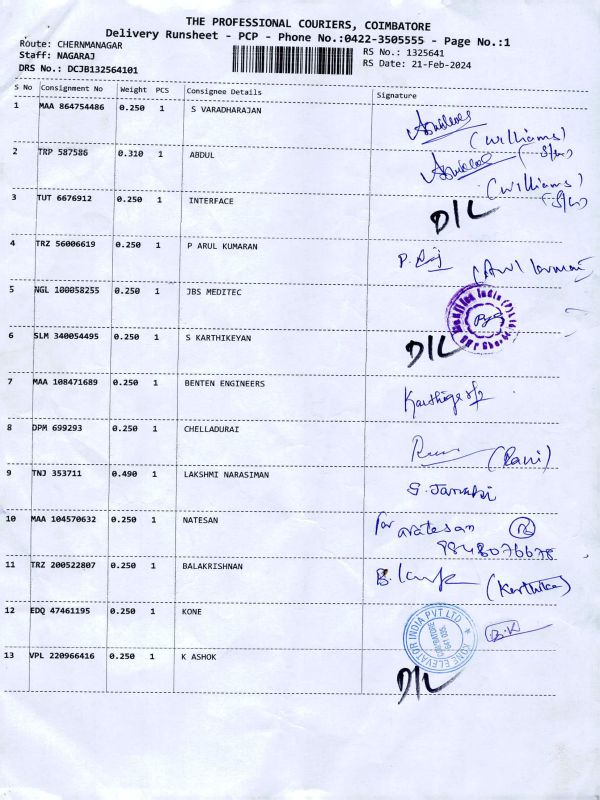 THE PROFESSIONAL COURIERS, COIMBATORE
Delivery Runsheet - PCP - Phone No.:0422-3505555 - Page No.:1
Route: CHERNMANAGAR
RS No.: 1325641
Staff: NAGARAJ
RS Date: 21-Feb-2024
DRS No.: DCJB132564101
S No Consignment No Weight PCS Consignee Details Signature
1 MAA 864754486 0.250 1 S VARADHARAJAN
(Williams)
2 TRP 587586 0.310 1 ABDUL
(Williams)
3 TUT 6676912 0.250 1 INTERFACE D/L
4 TRZ 56006619 0.250 1 P ARUL KUMARAN
P. Raj
5 NGL 100058255 0.250 1 JBS MEDITEC
6 SLM 340054495 0.250 1 S KARTHIKEYAN D/L
7 MAA 108471689 0.250 1 BENTEN ENGINEERS
8 DPM 699293 0.250 1 CHELLADURAI
(Rani)
9 TNJ 353711 0.490 1 LAKSHMI NARASIMAN
S. Janaki
10 MAA 104570632 0.250 1 NATESAN for
11 TRZ 200522807 0.250 1 BALAKRISHNAN
(Karthika)
12 EDQ 47461195 0.250 1 KONE KONE ELEVATOR INDIA PVT LTD
COIMBATORE
B.K
13 VPL 220966416 0.250 1 K ASHOK
D/L